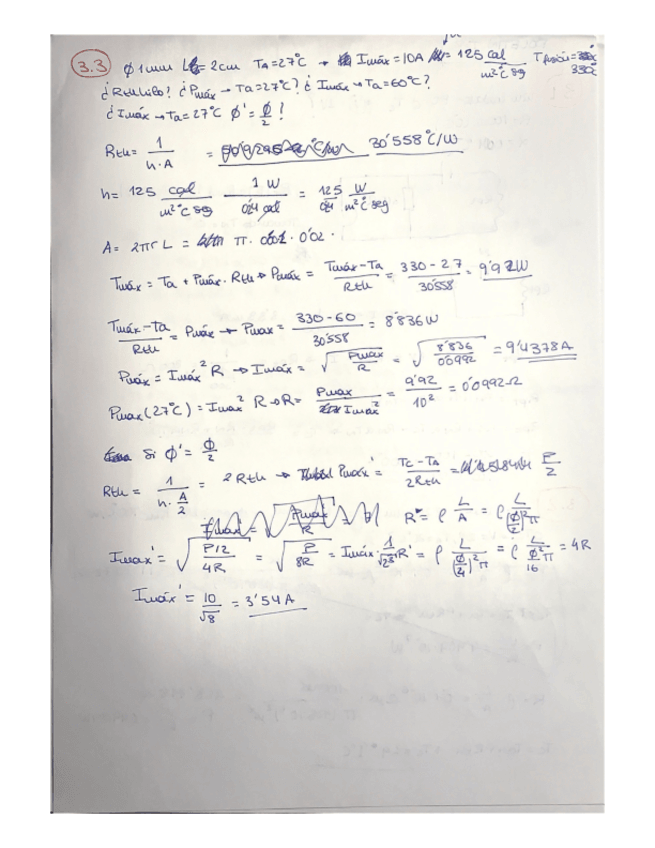 3.3 φ 1mm L = 2cm Ta = 27°C → Imáx = 10A h = 125 cal/m²°C sg Tfusión = 330°C
¿Rthhilo? ¿Pmáx → Ta = 27°C? ¿Imáx → Ta = 60°C?
¿Imáx → Ta = 27°C φ' = φ/2 ?
Rth = 1/h·A = 30'558°C/W
h = 125 cal/m²°C seg · 1 W/0'24 cal = 125/0'24 W/m²°C seg
A = 2πr L = π · 0'001 · 0'02 ·
Tmáx = Ta + Pmáx · Rth → Pmáx = Tmáx - Ta/Rth = 330 - 27/30'558 = 9'92W
Tmáx - Ta/Rth = Pmáx → Pmax = 330 - 60/30'558 = 8'836W
Pmáx = Imáx² R → Imáx = √Pmax/R = √8'836/0'0992 = 9'4378A
Pmax (27°C) = Imax² R → R = Pmax/Imax² = 9'92/10² = 0'0992Ω
Si φ' = φ/2
Rth = 1/h·A/2 = 2Rth → Pmáx' = Tc - Ta/2Rth = P/2
R' = ρ L/A = ρ L/(φ/2)²π
Imax' = √P/2/4R = √P/8R = Imáx · 1/√8 R' = ρ L/(φ/4)²π = ρ L/φ²/16 π = 4R
Imáx' = 10/√8 = 3'54A